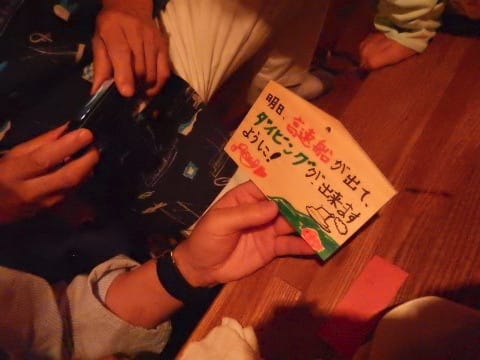 明日、高速船が出て、
ダイビングが出来ます
ように!